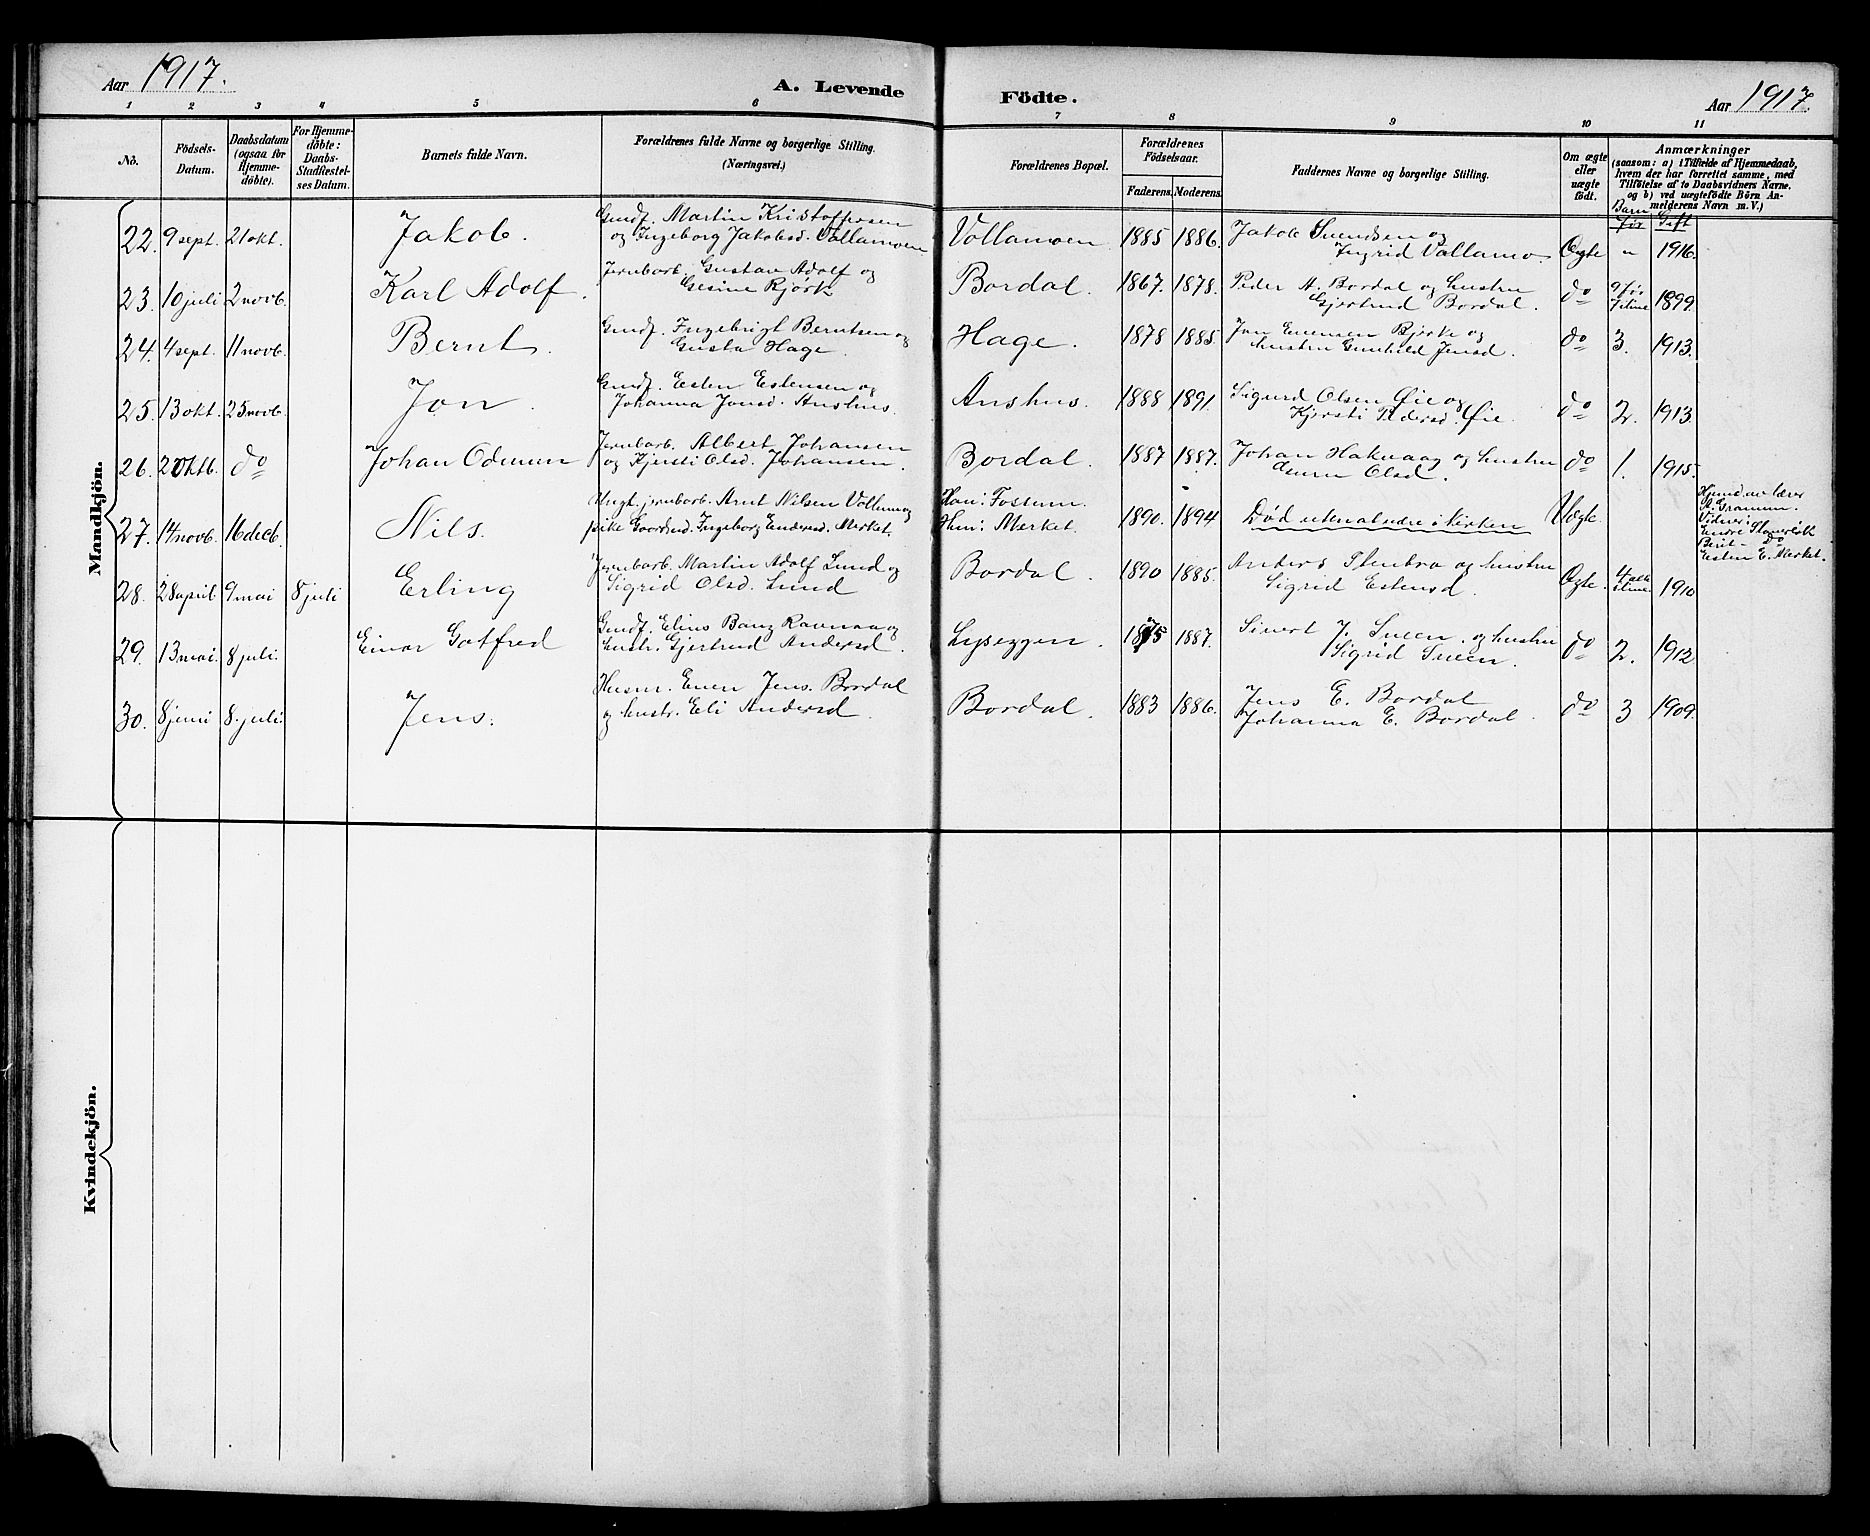 Aar 1917.
A. Levende Födte.
Aar 1917.
1 2 3 4 5 6 7 8 9 10 11
No.
Födsels-Datum.
Daabsdatum (ogsaa for Hjemmedöbte).
For Hjemmedöbte: Daabs-Stadfæstelses Datum.
Barnets fulde Navn.
Forældrenes fulde Navne og borgerlige Stilling. (Næringsvei.)
Forældrenes Bopæl.
Forældrenes Födselsaar.
Faderens. Moderens.
Faddernes Navne og borgerlige Stilling.
Om ægte eller uægte födt.
Anmærkninger (saasom: a) i Tilfælde af Hjemmedaab, hvem der har forrettet samme, med Tilföielse af to Daabsvidners Navne, og b) ved uægtefödte Börn Anmelderens Navn m. V.)
Barn før Gift
Mandkjön.
22. 9 sept. 21 okt. Jakob. Gmdf. Martin Kristoffersen
og Ingeborg Jakobsd. Vollamoen Vollamoen 1885 1886. Jakob Svendsen og
Ingrid Vollamo Ægte " 1916.
23. 10 juli 2 novb. Karl Adolf. Jernbarb. Gustav Adolf og
Gesine Bjørk Bordal. 1867. 1878. Peder A. Bordal og hustru
Gjertrud Bordal. do 9 før 1899.
24. 4 sept. 11 novb. Bernt. Gmdf. Ingebrigt Berntsen og
Gusta Hage. Hage. 1878 1885. Jon Evensen Bjørke og
hustru Gunhild Jensd. do 3. 1913.
25. 13 okt. 25 novb. Jon. Gmdf. Esten Estensen og
Johanna Jonsd. Anshus. Anshus. 1888 1891. Sigurd Olsen Øie og
Kjersti Pedersd. Øie. do 2. 1913.
26. 20 ktb. do Johan Odmun Jernbarb. Albert Johansen
og Kjersti Olsd. Johansen. Bordal. 1887 1887. Johan Haknaag og hustru
Olsd. do 1. 1915.
27. 14 novb. 16 decb. Nils. Ungk. jernbarb. Arnt Nilsen Vollum og
pike Ingeborg Endresd. Merket. Han: Fostum.
Hun: Merket. 1890. 1894 Død uten at være i kirken Uægte. Hjemd. av lærer
Gramm.
Vidner:
Endre
Berit — do
Esten E. Merket.
28. 28 april 9 mai 8 juli Erling Jernbarb. Martin Adolf Lund og
Sigrid Olsd. Lund Bordal. 1890 1885. Anders Stenbro og hustru
Sigrid Estensd. Ægte. 1910
29. 13 mai. 8 juli. Einar Gotfred Gmdf. Elius Banz Ravnaa og
hustr. Gjertrud Andersd. Lyseggen. 1875 1887. Sivert J. Sveen. og hustru
Sigrid Sveen. do 2. 1912
30. 8 juni 8. juli. Jens. Husm. Even Jens. Bordal
og hustr. Eli Andersd. Bordal. 1883 1886. Jens E. Bordal
Johanna E. Bordal. do 3 1909.
Kvindekjön.